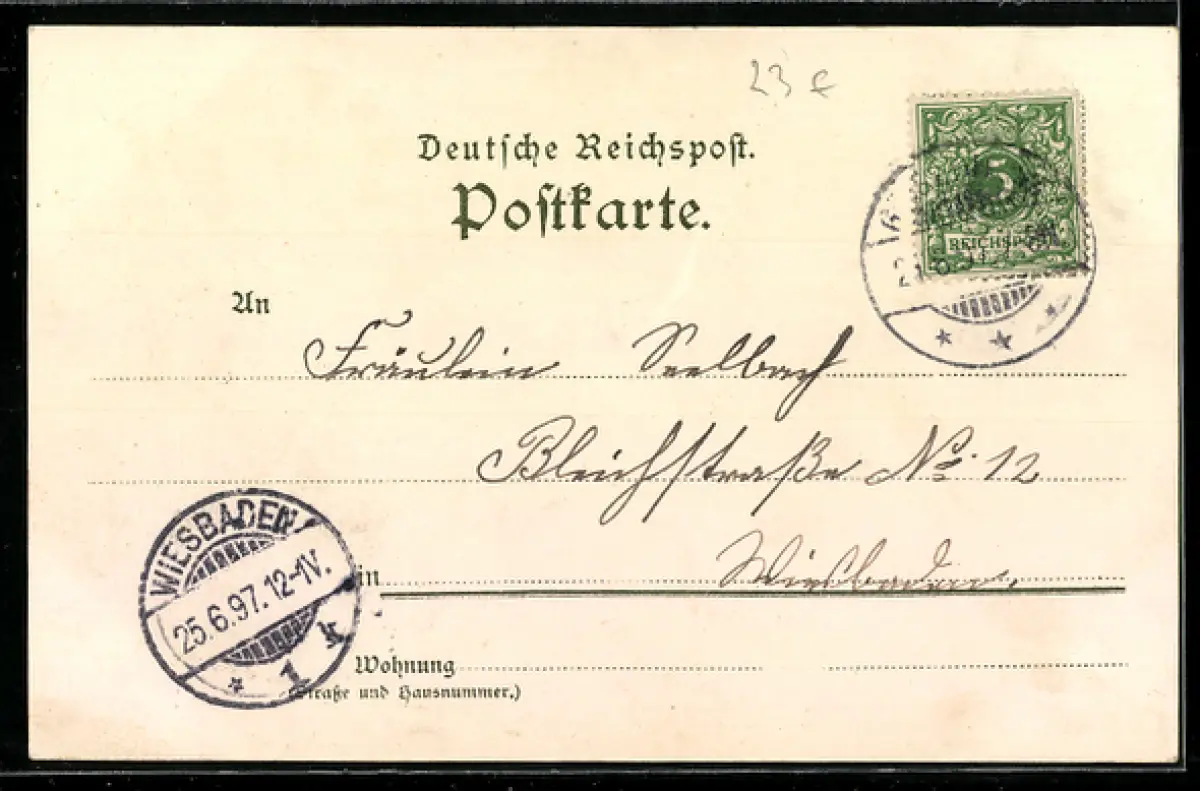 23 €
Deutsche Reichspost.
Postkarte.
5
REICHSPOST
An
Fräulein Seelbach
Bleichstraße No. 12
in Wiesbaden.
WIESBADEN
25.6.97.12-1V.
* 1 k
Wohnung
(Straße und Hausnummer.)